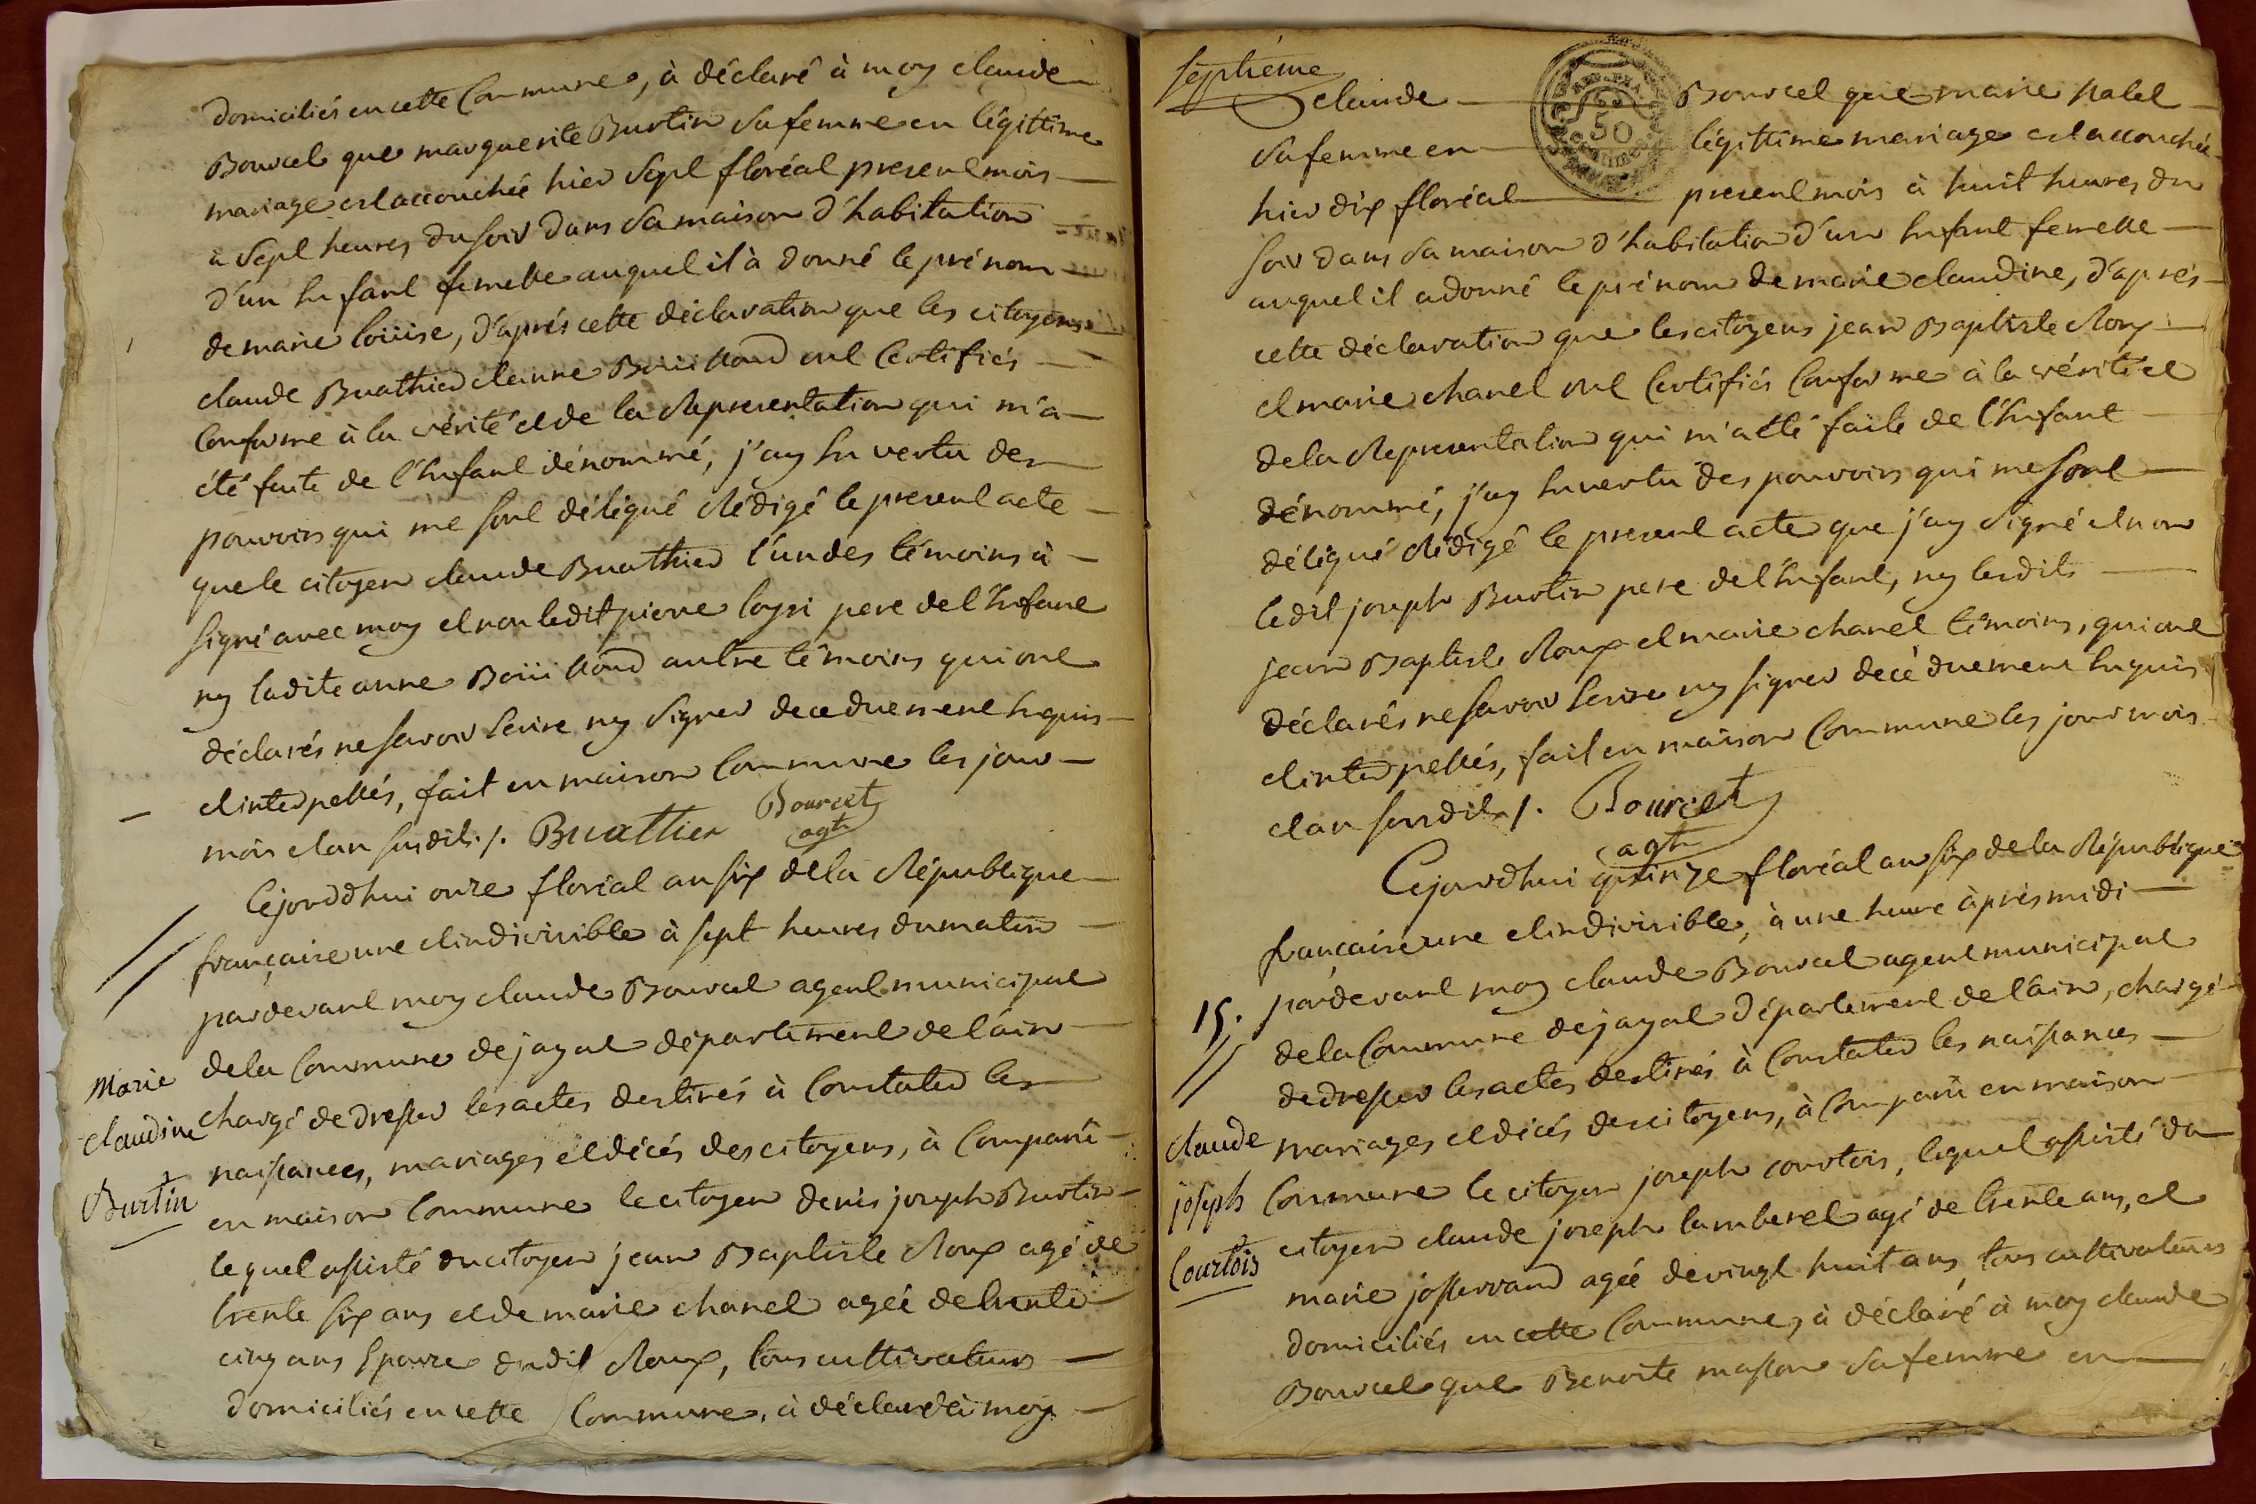 domiciliés en cette Commune, à déclaré à moy claude
Bourcet que marguerite Burtin sa femme en légittime
mariage est accouchée hier sept floréal present mois
à sept heures du soir dans sa maison d'habitation
d'un Enfant femelle auquel il à donné le prénom
de marie loüise, d'aprés cette déclaration que les citoyens
claude Buathier et anne Boüilloud ont Certifiés
Conforme à la vérité et de la Representation qui m'a
été faite de l'Enfant dénommé, j'ay En vertu des
pouvoirs qui me sont délégué Rédigé le present acte
que le citoyen claude Buathier l'un des témoins à
signé avec moy et non ledit pierre loysi pere de l'Enfant
ny ladite anne Boüilloud autre témoins qui ont
déclarés ne savoir Ecrire ny signer de ce duement Enquis
et interpellés, fait en maison Commune les jour
mois et an susdits /. Buathier Bourcet
agt
Cejourdhui onze floréal an six de la République
française une et indivisible à sept heures du matin
pardevant moy claude Bourcet agent municipal
de la Commune de jayat département de l'ain
Marie
chargé de dresser les actes destinés à Constater les
claudine
naissances, mariages et décés des citoyens, à Comparû
Burtin
en maison Commune le citoyen denis joseph Burtin
lequel assisté du citoyen jean Baptiste Roux agé de
trente six ans et de marie chanel agée de trente
cinq ans Epouse dudit Roux, tous cultivateurs
domiciliés en cette Commune, à déclaré à moy
septiéme
claude Bourcet que marie
sa femme en légittime mariage est accouchée
hier dix floréal present mois à huit heures du
soir dans sa maison d'habitation d'un Enfant femelle
auquel il a donné le prénom de marie claudine, d'aprés
cette déclaration que les citoyens jean Baptiste Roux
et marie chanel ont Certifiés Conforme à la vérité et
de la Representation qui m'a été faite de l'Enfant
dénommé, j'ay En vertu des pouvoirs qui me sont
délégué Rédigé le present acte que j'ay signé et non
ledit joseph Burtin pere de l'Enfant, ny lesdits
jean Baptiste Roux et marie chanel témoins, qui ont
déclarés ne savoir Ecrire ny signer de cé duement Enquis
et interpellés, fait en maison Commune les jour mois
et an susdits /. Bourcet
agt
Cejourdhui quinze floréal an six de la République
française une et indivisible, à une heure àprés midi
15. pardevant moy claude Bourcet agent municipal
de la Commune de jayat département de l'ain, chargé
de dresser les actes destinés à Constater les naissances
claude
mariages et décés des citoyens, à Comparû en maison
joseph
Commune le citoyen joseph courtois, lequel assisté du
Courtois
citoyen claude joseph lamberet agé de trente ans, et
marie josserrand agée de vingt huit ans, tous cultivateurs
domiciliés en cette Commune, à déclaré à moy claude
Bourcet que Benoite masson sa femme en